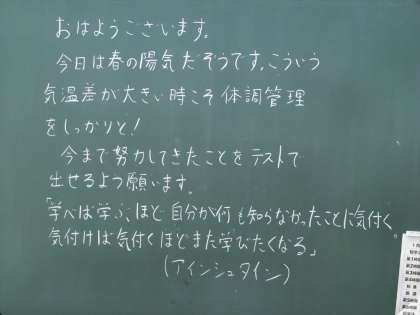 おはようございます。
今日は春の陽気だそうです。こういう
気温差が大きい時こそ体調管理
をしっかりと!
今まで努力してきたことをテストで
出せるよう願います。
「学べば学ぶほど自分が何も知らなかったことに気付く
気付けば気付くほどまた学びたくなる」
(アインシュタイン)